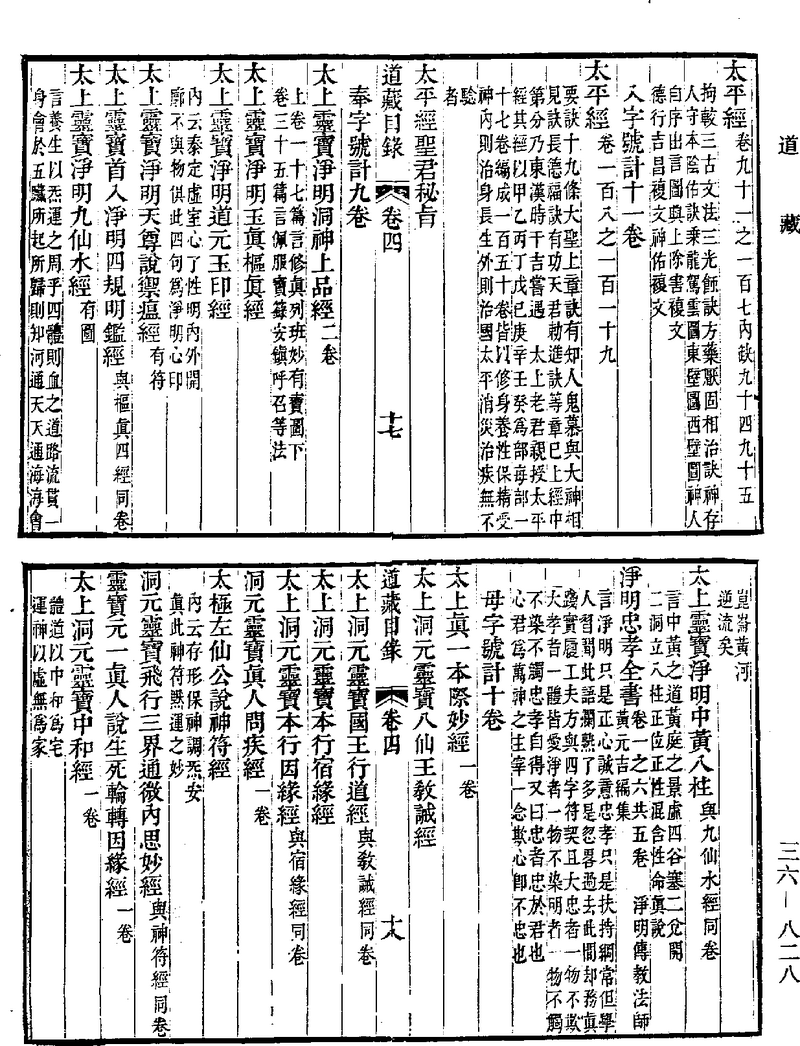 道藏
三六—八二八
太平經卷九十一之一百七內欽九十四九十五
拘較三古文法三光飾訣方藥厭固相治訣神存
人守本陰佑訣乘龍駕雲圖東壁圖西壁圖神人
自序出言圖與上除害複文
德行吉昌複文神佑複文
入字號計十一卷
太平經卷一百八之一百一十九
要訣十九條大聖上章訣有知人鬼墓與大神相
見訣長德福訣有功天君勅進訣等章已上經中
第分乃東漢時干吉嘗遇　太上老君親授太平
經其經以甲乙丙丁戊己庚辛壬癸爲部毎部一
十七卷編成一百五十卷皆以修身養性保精愛
神內則治身長生外則治國太平消災治疾無不
驗
者
太平經聖君秘旨
道藏目錄　卷四　十七
奉字號計九卷
太上靈寶淨明洞神上品經二卷
上卷一十七篇言修眞列班妙有寶圖下
卷三十五篇言佩服寶籙安鎮呼召等法
太上靈寶淨明玉眞樞眞經
太上靈寶淨明道元玉印經
內云泰定虛室心了性明內外開
廓不與物俱此四句爲淨明心印
太上靈寶淨明天尊說禦瘟經有符
太上靈寶首入淨明四規明鑑經與樞眞四經同卷
太上靈寶淨明九仙水經有圖
言養生以炁運之周乎四體則血之道路流貫一
身會於五臟所起所歸則知河通天天通海海會
崑崙黃河
逆流矣
太上靈寶淨明中黃八柱與九仙水經同卷
言中黃之道黃庭之景虛四谷塞二兊開
二洞立八柱正位正性混合性命眞說
淨明忠孝全書卷一之六共五卷　淨明傳教法師
黃元吉編集
言淨明只是正心誠意忠孝只是扶持綱常但學
人習聞此語爛熟了多是忽畧過去此間却務眞
踐實履工夫方與四字符契且大忠者一物不欺
大孝者一體皆愛淨者一物不染明者一物不觸
不染不觸忠孝自得又曰忠者忠於君也
心君爲萬神之主宰一念欺心卽不忠也
母字號計十卷
太上眞一本際妙經一卷
太上洞元靈寶八仙王敎誡經
道藏目錄　卷四　十八
太上洞元靈寶國王行道經與敎誡經同卷
太上洞元靈寶本行宿緣經
太上洞元靈寶本行因緣經與宿緣經同卷
洞元靈寶眞人問疾經一卷
太極左仙公說神符經
內云存形保神調炁安
眞此神符黙運之妙
洞元靈寶飛行三界通微內思妙經與神符經同卷
靈寶元一眞人說生死輪轉因緣經一卷
太上洞元靈寶中和經一卷
體道以中和爲宅
運神以虛無爲家